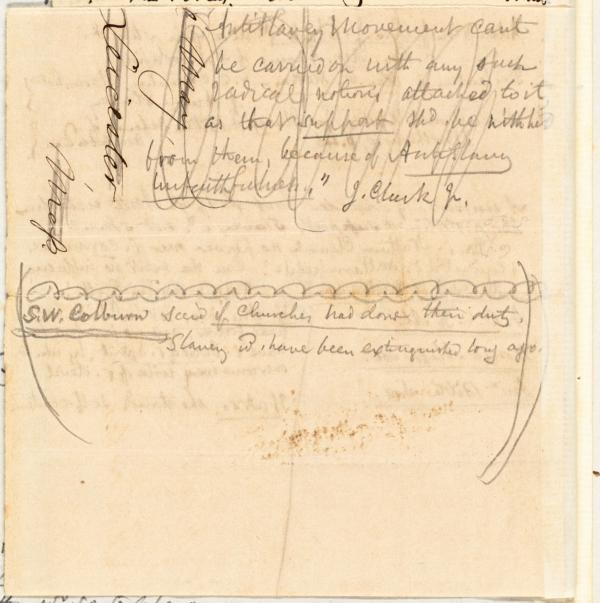 Antislavery Movement can't
be carried on with any such
radical notions attached to it
as that support shd. be withhe
from them, because of Antislavery
unfaithfulness," J. Clark Jr.
Leicester
May
Mass
S.W. Colburn said if Churches had done their duty,
Slavery wd. have been extinguished long ago.